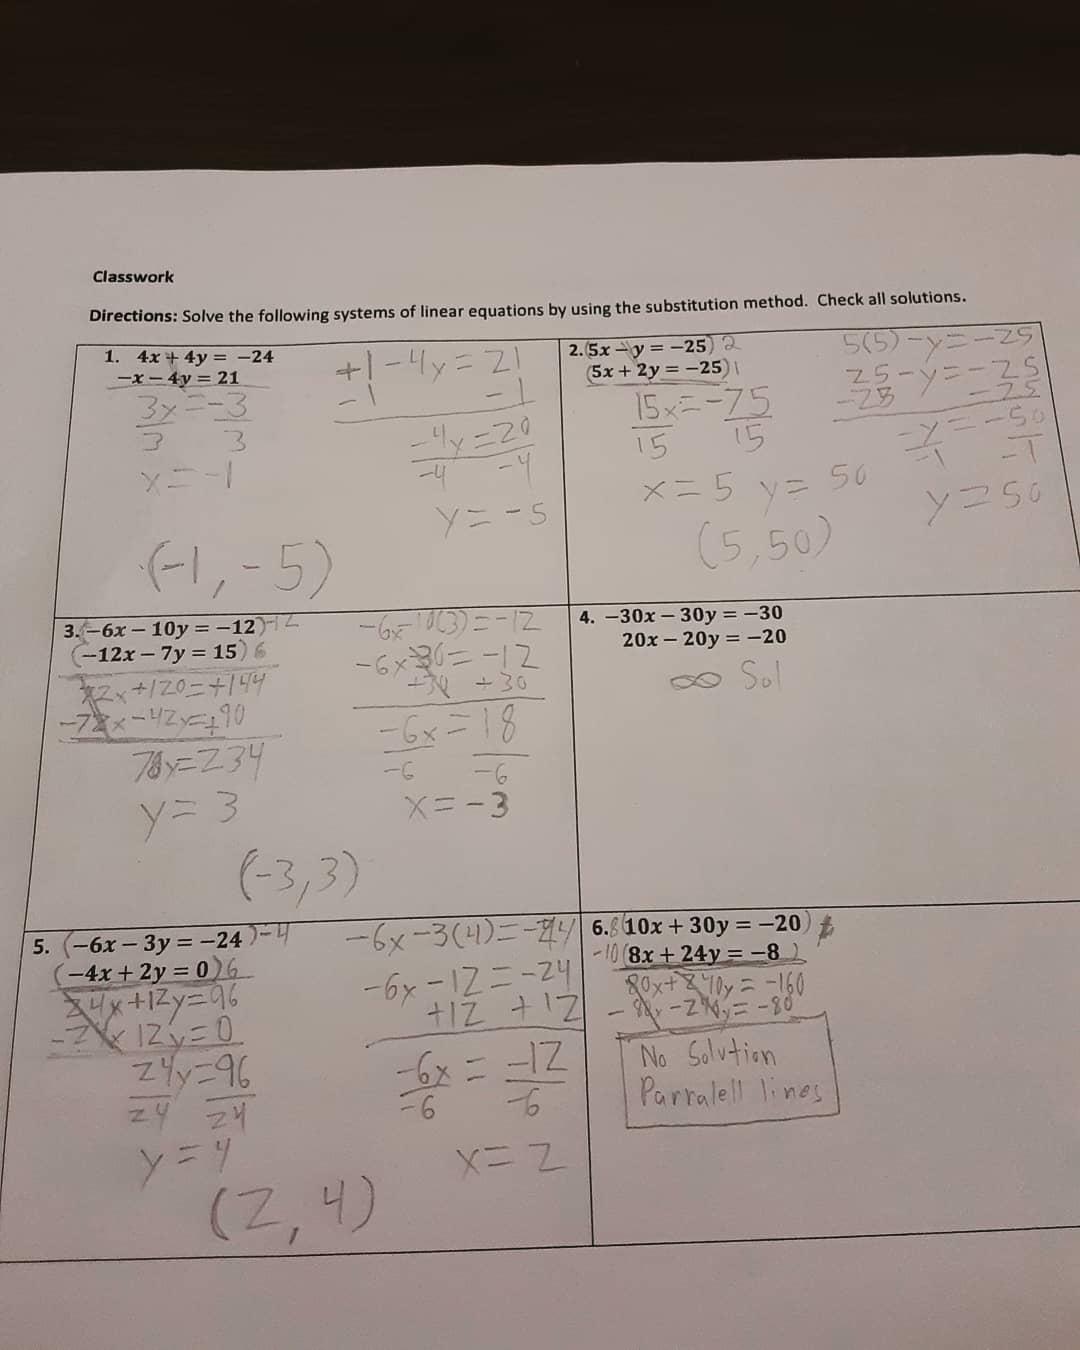 Classwork
Directions: Solve the following systems of linear equations by using the substitution method. Check all solutions.
1. 4x + 4y = −24
−x − 4y = 21
3x=-3
3 3
x=-1
+1-4y=21
-1 -1
-4y=20
-4 -4
y=-5
(-1,-5)
2. (5x − y = −25) 2
(5x + 2y = −25) 1
15x=-75
15 15
x=5 y=50
(5,50)
5(5)-y=-25
25-y=-25
-25 -25
-y=-50
-1 -1
y=50
3. (−6x − 10y = −12)-12
(−12x − 7y = 15) 6
72x+120=+144
-72x-42y=+90
78y=234
y=3
-6x-10(3)=-12
-6x-30=-12
+30 +30
-6x=18
-6 -6
x=-3
(-3,3)
4. −30x − 30y = −30
20x − 20y = −20
∞ Sol
5. (−6x − 3y = −24)-4
(−4x + 2y = 0)6
24x+12y=96
-24x 12y=0
24y=96
24 24
y=4
-6x-3(4)=-24
-6x-12=-24
+12 +12
-6x=-12
-6 -6
x=2
(2,4)
6. 8(10x + 30y = −20)
-10(8x + 24y = −8)
80x+240y=-160
-80x-240y=-80
No Solution
Parralell lines